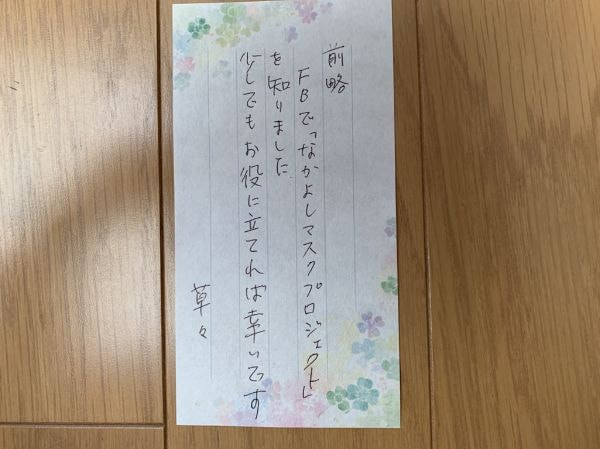 前略
FBで「なかよしマスクプロジェクト」
を知りました
少しでもお役に立てれば幸いです
草々